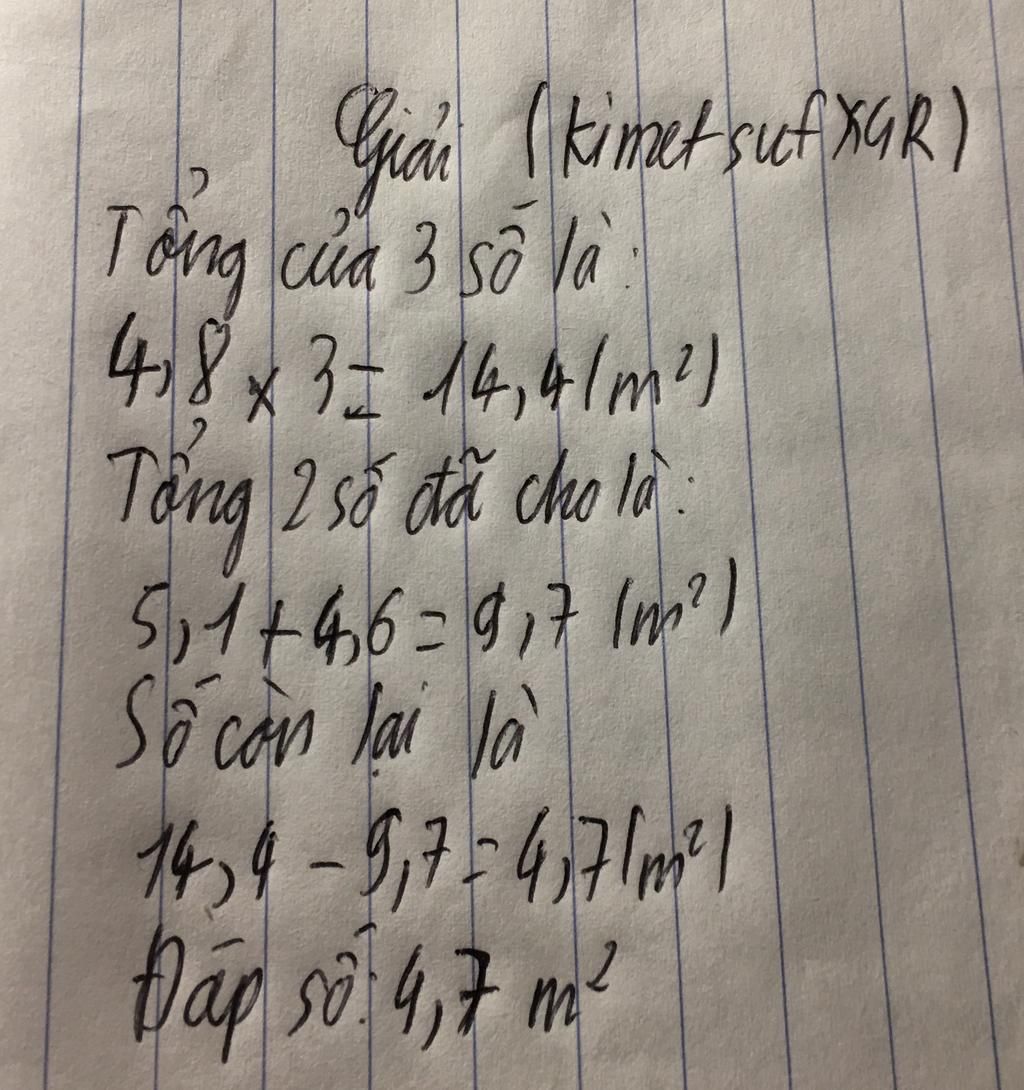 Giải (kimetsufXGR)
Tổng của 3 số là:
4,8 x 3 = 14,4 (m²)
Tổng 2 số đã cho là:
5,1 + 4,6 = 9,7 (m²)
Số còn lại là
14,4 - 9,7 = 4,7 (m²)
Đáp số: 4,7 m²